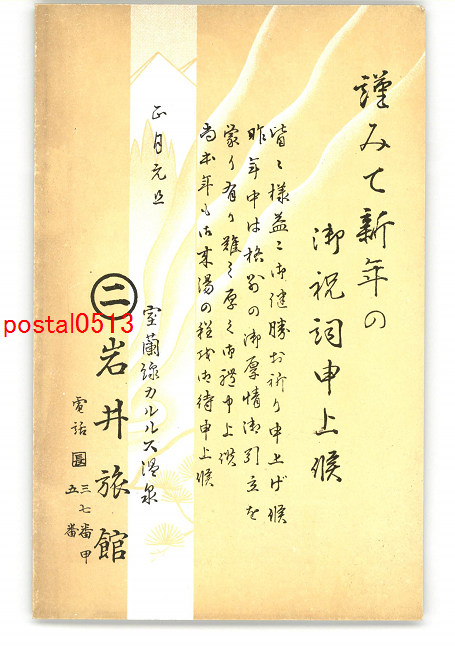 謹みて新年の
御祝詞申上候
皆々様益々御健勝お祈り申上げ候
昨年中は格別の御厚情御引立を
蒙り有り難く厚く御礼申上候
尚本年も御来湯の程伏御待申上候
正月元旦
室蘭線カルルス温泉
㊁岩井旅館
電話 三七番甲
五番
postal0513